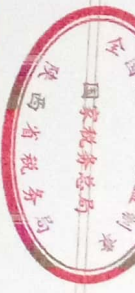 全国
制章
国家税务总局
陕西省税务局